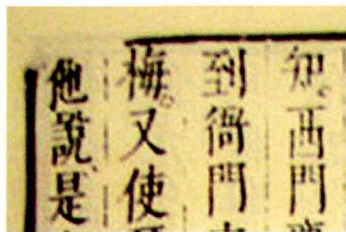 知。西門
到衙門
梅。又使
他說、是